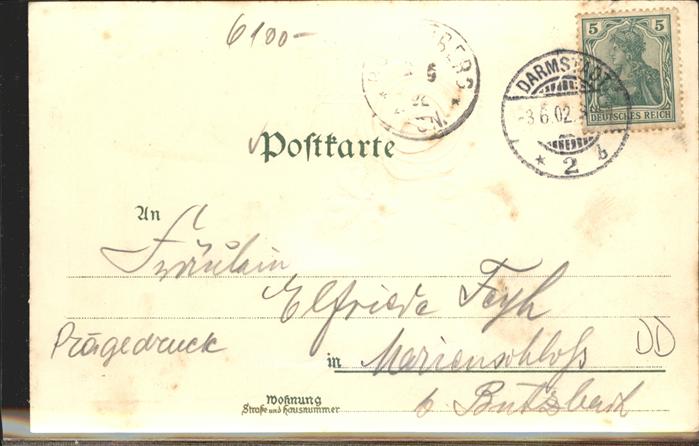 6100-
5 5
DEUTSCHES REICH
DARMSTADT
-3.6.02.
* 2 b
Postkarte
An
Fräulein
Elfriede Feyh
Prägedruck
in Marienschloß
DD
Wohnung
Straße und Hausnummer
b Butzbach